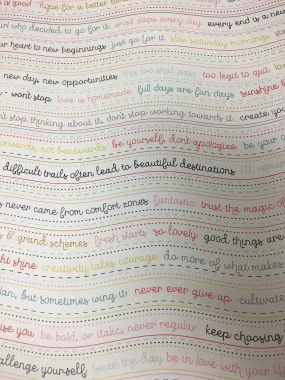 is good hope for a better
who decided to go for it small steps every day every end is a new
ur heart to new beginnings just go for it slow saturday mornings
new days new opportunities this too shall pass too legit to quit
- wont stop love is homemade full days are fun days sunshine
nt stop thinking about it, dont stop working towards it create you
forwards not backwards be yourself, dont apologize be your o
difficult trails often lead to beautiful destinations
s never came from comfort zones fantastic trust the magic of
s & grand schemes fresh starts so lovely good things are
ht shine creativity takes courage do more of what makes
lan, but sometimes wing it never ever give up cultivate
use you be bold, or italic, never regular keep choosing
allenge yourself seize the day be in love with your li